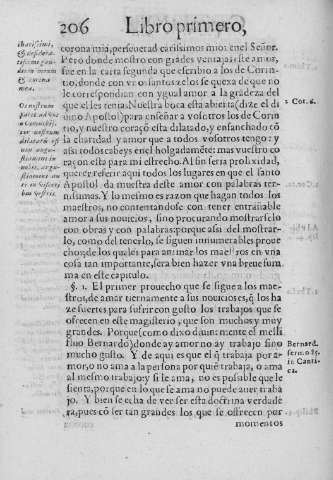 206 Libro primero,
corona mia, perseuerad carissimos mios en el Señor.
Pero donde mostro con grades ventajas este amor,
fue en la carta segunda que escribio a los de Corin-
tio, donde con vnos santos zelos se quexa de que no
le correspondian con ygual amor a la gradeza del
que el les tenia: Nuestra boca esta abierta (dize el di
uino Apostol) para enseñar a vosotros los de Corin
tio, y nuestro coraçõ esta dilatado, y ensanchado cõ
la charidad y amor que a todos vosotros tengo: y
assi todos cabeys en el holgadamẽte: mas vuestro co
raçon esta para mi estrecho. Al fin seria prolixidad,
querer referir aqui todos los lugares en que el santo
Apostol da muestra deste amor con palabras ter-
nissimas. Y lo mesmo es razon que hagan todos los
maestros, no contentandose con tener entrañable
amor a sus nouicios, sino procurando mostrarselo
con obras y con palabras: porque assi del mostrar-
lo, como del tenerlo, se siguen innumerables proue
chos; de los quales para animar los maestros en vna
cosa tan importante, sera bien hazer vna breue sum
ma en este capitulo.
§. 1. El primer prouecho que se sigue a los maes-
tros, de amar tiernamente a sus nouicios es, q̃ los ha
ze fuertes para sufrir con gusto los trabajos que se
ofrecen en este magisterio, que son muchos y muy
grandes. Porque (como dixo diuinamente el melli
fluo Bernardo) donde ay amor no ay trabajo sino
mucho gusto. Y de aqui es que el q̃ trabaja por a-
mor, o no ama a la persona por quiẽ trabaja, o ama
al mesmo trabajo: y si le ama, no es posible que le
sienta, porque en lo que se ama no puede auer traba
jo. Y bien se echa de ver ser esta doctrina verdade
ra, pues cõ ser tan grandes los que se ofrecen por
momentos
2 Cor. 6.
Bernard.
serm. 85.
in Canti-
ca.